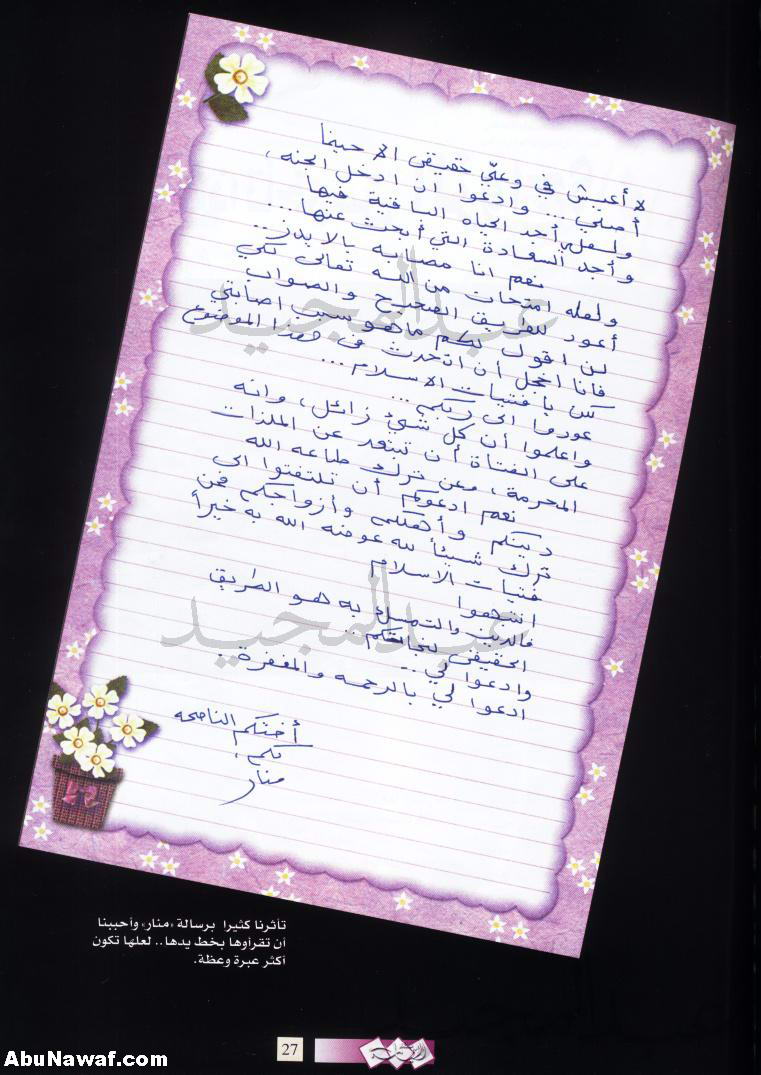 لا أعيش في وعيّ حقيقي الا حينما
أصلي... وادعوا ان ادخل الجنه،
ولعلي أجد الحياه الباقية فيها
وأجد السعادة التي أبحث عنها...
نعم انا مصابه بالايدز..
ولعله امتحان من الله تعالى لكي
أعود للطريق الصحيح والصواب
لن اقول لكم ما هو سبب اصابتي
فانا اخجل أن اتحدث في هذا الموضوع
لكن يا فتيات الاسلام...
عودوا الى ربكم...
واعلموا أن كل شيئ زائل، وانه
على الفتاة أن تبتعد عن الملذات
المحرمة، وعن ترك طاعه الله
نعم ادعوكم أن تلتفتوا الى
دينكم وأهلكم وأزواجكم فمن
ترك شيئاً لله عوضه الله به خيراً
فتيات الاسلام
انتبهوا
فالدين والتمسك به هو الطريق
الحقيقي لخالقكم..
وادعوا لي..
ادعوا لي بالرحمه والمغفرة.
أختكم الناصحه
لكم،
منار
عبدالمجيد
عبدالمجيد
تأثرنا كثيرا برسالة «منار» وأحببنا
أن تقرأوها بخط يدها.. لعلها تكون
أكثر عبرة وعظة.
27
AbuNawaf.com